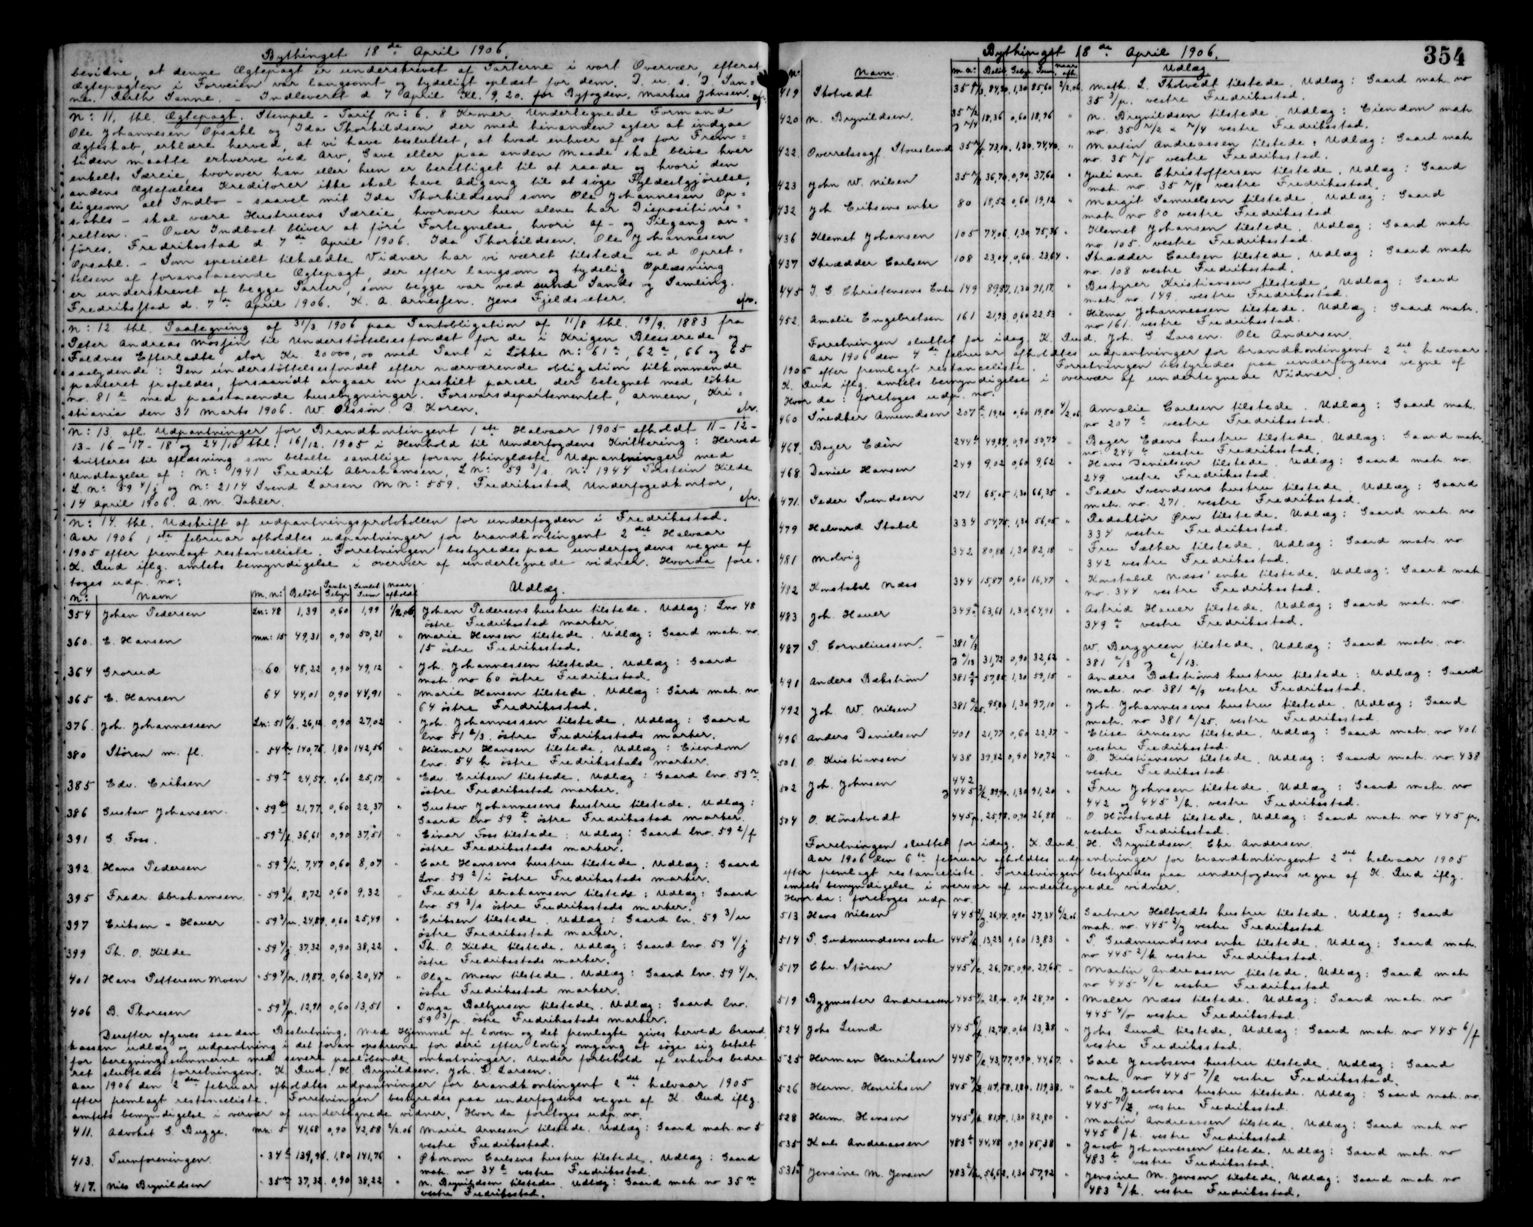 Bythinget 18de April 1906.
bevidne, at denne Ægtepagt er underskrevet af Parterne i vort Overvær, efterat
Ægtepagten i Forveien var langsomt og tydeligt oplæst for dem. D. u. s. J. San=
ne. Ruth Sanne. – Indleveret d 7 April Kl. 9,20. for Byfogden. Markus Johnsen.
N: 11, thl. Ægtepagt. Stempel-Tarif N: 6. 8 Kroner. Undertegnede Formand
Ole Johannesen Opsahl og Ida Thorkildsen, der med hinanden agter at indgaa
Ægteskab, erklære herved, at vi have besluttet, at hvad enhver af os for Frem=
tiden maatte erhverve ved Arv, Gave eller paa anden Maade skal blive hver
enkelts Særeie, hvorover han eller hun er berettiget til at raade og hvori den
andens Ægtefælles Kreditorer ikke skal have Adgang til at søge Fyldestgjørelse,
ligesom alt Indbo – saavel mit Ida Thorkildsens som Ole Johannesen Op=
sahls – skal være Hustruens Særeie, hvorover hun alene har Dispositions=
retten. – Over Indboet bliver at føre Fortegnelse, hvori af- og Tilgang an=
føres. Fredrikstad d 7de April 1906. Ida Thorkildsen. Ole Johannesen
Opsahl. – Som specielt tilkaldte Vidner har vi været tilstede ved Opret=
telsen af foranstaaende Ægtepagt, der efter langsom og tydelig Oplæsning
er underskrevet af begge Parter, som begge var ved sund Sands og Samling.
Fredrikstad d. 7de April 1906. K. A. Arnesen. Jens Fjeldsæter.
N: 12 thl. Paategning af 31/3 1906 paa Pantobligation af 11/8 thl. 19/9 1883 fra
Peter Andreas Mosfjen til Understøttelsesfondet for de i Krigen Blesserede og
Faldnes Efterladte stor Kr 20000,00 med Pant i Løkke N: 61a, 62a, 66 og 65
saalydende: Den understøttelsesfondet efter nærværende obligation tilkommende
panteret frafaldes, forsaavidt angaar en fraskilt parcel, der betegnet med løkke
no. 81a med paastaaende husebygninger. Forsvarsdepartementet, armeen, Kri=
stiania den 31 Marts 1906. W. Olssøn. D. Koren.
N: 13 afl. Udpantninger for Brandkontingent 1ste Halvaar 1905 afholdt 11-12-
13-16-17-18 og 24/10 thl. 16/12. 1905 i Henhold til Underfogdens Kvittering: Herved
kvitteres til aflæsning som betalte samtlige foran thinglæste Udpantninger med
Undtagelse af: N: 1941 Fredrik Abrahamsen, L N: 59 3/s. N: 1944 Torstein Kilde
L N: 59 4/j og N: 2114 Svend Larsen M N: 559. Fredrikstad Underfogedkontor,
14 April 1906. A. M. Dahler.
N: 14. thl. Udskrift af udpantningsprotokollen for underfogden i Fredrikstad.
Aar 1906 1ste februar afholdtes udpantninger for brandkontingent 2det Halvaar
1905 efter fremlagt restanceliste. Forretningen bestyredes paa underfogdens vegne af
K. Rud iflg. amtets bemyndigelse i overvær af undertegnede vidner. Hvorda fore=
toges udp. no:
N: Navn M. N: Beløb Gebyr Sum naar afholdt Udlæg.
354 Johan Pedersen Ln: 48 1,39 0,60 1,99 1/2.06 Johan Pedersens hustru tilstede. Udlæg: Lno 48
østre Fredrikstad marker.
360. E. Hansen mn: 15 49,31 0,90 50,21 " Marie Hansen tilstede. Udlæg: Gaard mat. no.
15 østre Fredrikstad.
364 Grorud 60 48,22 0,90 49,12 " Joh. Johannessen tilstede. Udlæg: Gaard
mat. no 60 østre Fredrikstad.
365 E. Hansen 64 44,01 0,90 44,91 " Marie Hansen tilstede. Udlæg: Gård mat. no
64 østre Fredrikstad.
376. Joh. Johannessen 26,12 0,90 27,02 " Joh. Johannessen tilstede. Udlæg: Gaard
østre Fredrikstads marker.
380 Støren m. fl. 140,76 1,80 142,56 " Hilmar Hansen tilstede. Udlæg: Eiendom
lno. 54 h østre Fredrikstads marker.
385 Edv. Eriksen 24,57 0,60 25,17 " Edv. Eriksen tilstede. Udlæg: Gaard lno. 59
østre Fredrikstad marker.
386 Gustav Johansen. 21,77 0,60 22,37 " Gustav Johannesens hustru tilstede. Udlæg:
Gaard lno 59 østre Fredrikstad marker.
391 G. Foss. 59 2/f 36,61 0,90 37,51 " Einar Foss tilstede. Udlæg: Gaard lno. 59 2/f
østre Fredrikstads marker.
392 Hans Pedersen 59 2/i. 7,47 0,60 8,07 Carl Hansens hustru tilstede. Udlæg: Gaard
Lno. 59 2/i østre Fredrikstads marker.
395 Fredr. Abrahamsen 59 3/s 8,72 0,60 9,32 Fredrik Abrahamsen tilstede. Udlæg: Gaard
lno. 59 3/s østre Fredrikstads marker.
397 Eriksen & Hauer 24,89 0,60 25,49 " Eriksen tilstede. Udlæg: Gaard ln. 59
østre Fredrikstad marker.
399 Th. O. Kilde 59 4/j 37,32 0,90 38,22 Th. O. Kilde tilstede. Udlæg: Gaard lno. 59 4/j
østre Fredrikstads marker.
401 Hans Pettersen Moen 19,87 0,60 20,47 " Olga Moen tilstede. Udlæg: Gaard lno. 59
østre Fredrikstad marker.
406 B. Thoresen 12,91 0,60 13,51 " Inga Balgesen tilstede. Udlæg: Gaard lno.
østre Fredrikstads marker.
Derefter afgaves saadan Beslutning. Med Hjemmel af loven og det fremlagte gives herved brand
kassen udlæg og udpantning i det foran opskrevne for deri efter lovlig omgang at søge sig betalt
for beregningssummerne med senere paaløbende omkostninger. Under forbehold af enhvers bedre
ret sluttedes forretningen. K. Rud. H. Brynildsen. Joh. G. Larsen.
Aar 1906 den 2den februar afholdtes udpantninger for brandkontingent 2det halvaar 1905
efter fremlagt restanceliste. Forretningen bestyredes paa underfogdens vegne af K. Rud iflg.
amtets bemyndigelse i overvær af undertegnede vidner. Hvor da foretoges udp. no.
411. Advokat G Bugge. mn: 5 41,68 0,90 42,58 2/2.06 Marie Arnesen tilstede. Udlæg: Gaard mat. no 5
vestre Fredrikstad.
413. Turnforeningen 34 139,96 1,80 141,76 " Økonom Carlsens hustru tilstede. Udlæg: Gaard
mat. no 34 vestre Fredrikstad.
417. Nils Brynildsen 35 37,32 0,90 38,22 " N. Brynildsen tilstede. Udlæg: Gaard mat. no 35
vestre Fredrikstad.
Bythinget 18de April 1906.
354
N: Navn m. n: Beløb Gebyr Sum naar afh. Udlæg
419 Thotvedt 84,30 1,30 85,60 2/2.06 Math. L. Thotvedt tilstede. Udlæg: Gaard mat. no
vestre Fredrikstad.
420 N. Brynildsen 18,36 0,60 18,96 " N. Brynildsen tilstede. Udlæg: Eiendom mat
vestre Fredrikstad.
422 Overretssagf Stousland 73,10 1,30 74,40 " Martin Andreassen tilstede. Udlæg: Gaard mat
vestre Fredrikstad.
423 John W. Nilsen 36,70 0,90 37,60 " Juliane Christoffersen tilstede. Udlæg: Gaard
mat. no vestre Fredrikstad.
432 Joh. Eriksens enke 80 18,52 0,60 19,12 " Margit Samuelsen tilstede. Udlæg: Gaard
mat no 80 vestre Fredrikstad
436 Klemet Johansen 105 74,06 1,30 75,36 " Klemet Johansen tilstede. Udlæg: Gaard mat
no 105 vestre Fredrikstad.
437 Skrædder Carlsen 108 23,04 0,60 23,64 " Skrædder Carlsen tilstede. Udlæg: Gaard mat
no. 108 vestre Fredrikstad.
445 T. G Christensens Enke 149 89,87 1,30 91,17 " Bestyrer Kristiansen tilstede, Udlæg: Gaard
mat. no 149. vestre Fredrikstad.
452. Amalie Engebretsen 161 21,93 0,60 22,53 " Hilma Johannessen tilstede. Udlæg: Gaard mat.
no 161. vestre Fredrikstad.
Forretningen sluttet for idag. K. Rud. Joh. G Larsen. Ole Andersen.
Aar 1906 den 4de februar afholdtes udpantninger for brandkontingent 2det halvaar
1905 efter fremlagt restanceliste. Forretningen bestyredes paa underfogdens vegne af
K. Rud iflg. amtets bemyndigelse i overvær af undertegnede Vidner.
Hvor da: foretoges udp. no.
460 Snedker Amundsen 207 19,20 0,60 19,80 4/2.06 Amalie Carlsen tilstede. Udlæg: Gaard mat.
no 207 vestre Fredrikstad.
467. Bager Edin 244 49,87 0,90 50,77 " Bager Edens hustru tilstede. Udlæg: Gaard mat.
no. 244 vestre Fredrikstad.
468 Daniel Hansen 249 9,02 0,60 9,62 " Hans Danielsen tilstede. Udlæg: Gaard mat no.
249 vestre Fredrikstad.
471. Peder Svendsen 271 65,05 1,30 66,35 " Peder Svendsens hustru tilstede. Udlæg: Gaard
mat. no. 271. vestre Fredrikstad.
479 Halvard Stabel 334 54,75 1,30 56,05 " Redaktør Ørn tilstede. Udlæg: Gaard mat. no.
334 vestre Fredrikstad.
481 Molvig 342 80,88 1,30 82,18 " Fru Sæther tilstede. Udlæg: Gaard mat. no
342 vestre Fredrikstad.
482 Konstabel Næss 344 15,87 0,60 16,47 " Konstabel Næss' enke tilstede. Udlæg: Gaard mat
no. 344 vestre Fredrikstad.
483 Joh. Hauer 349 63,61 1,30 64,91 " Astrid Hauer tilstede. Udlæg: Gaard mat. no.
349 vestre Fredrikstad.
487 P. Corneliussen. 31,72 0,90 32,62 " W. Berggreen tilstede. Udlæg: Gaard mat. no.
vestre Fredrikstad.
491 Anders Bækstrøm 57,85 1,30 59,15 " Anders Bækstrøms hustru tilstede. Udlæg: Gaard
mat. no. 381 vestre Fredrikstad.
492 Joh. W. Nilsen 95,80 1,30 97,10 " Joh. Johannessens hustru tilstede. Udlæg: Gaard
mat. no 381 vestre Fredrikstad
496 Anders Danielsen 401 21,77 0,60 22,37 " Elise Arnesen tilstede, Udlæg: Gaard mat. no 401
vestre Fredrikstad.
501 O. Kristiansen 438 39,82 0,90 40,72 " O. Kristiansen tilstede. Udlæg: Gaard mat. no. 438
vestre Fredrikstad.
502 Joh. Johnsen 442 og 445 89,90 1,30 91,20 " Fru Johnsen tilstede. Udlæg: Gaard mat. no
442 og 445 vestre Fredrikstad.
504 O. Hønstvedt 26,88 " O. Hønstvedt tilstede, Udlæg: Gaard mat. no 445
vestre Fredrikstad.
Forretningen sluttet for idag. K Rud. H. Brynildsen. Chr. Andersen.
Aar 1906 den 6te februar afholdtes udpantninger for brandkontingent 2det halvaar 1905
efter fremlagt restanceliste. Forretningen bestyredes paa underfogdens vegne af K. Rud iflg.
amtets bemyndigelse i overvær af undertegnede vidner.
Hvor da: foretoges udp. no.
513 Hans Nilsen 26,44 0,90 27,34 6/2.06 Gartner Holtvedts hustru tilstede. Udlæg: Gaard
mat. no. 445 vestre Fredrikstad
514 P. Gudmundsens enke 13,23 0,60 13,83 " P. Gudmundsens enke tilstede. Udlæg: Gaard mat.
no 445 vestre Fredrikstad.
517 Chr. Støren 26,75 0,90 27,65 " Martin Andreassen tilstede. Udlæg: Gaard mat
no 445 vestre Fredrikstad
519 Bygmester Andreassen 28,70 " Maler Næss tilstede. Udlæg: Gaard mat no
vestre Fredrikstad.
524 Johs Lund 12,78 0,60 13,38 " Johs Lund tilstede, Udlæg: Gaard mat. no 445 6/f
vestre Fredrikstad.
525 Herman Henriksen 43,77 0,90 44,67 " Carl Jacobsens hustru tilstede. Udlæg: Gaard
mat. no 445 vestre Fredrikstad.
526 Herm. Henriksen 119,38 " Carl Jacobsens hustru tilstede. Udlæg: Gaard mat. no.
vestre Fredrikstad.
528 Herm. Hansen 1,30 82,80 " Martin Andreassen tilstede. Udlæg: Gaard mat. no
vestre Fredrikstad
535 Karl Andreassen 44,48 0,90 45,38 " Jacob Johansen tilstede. Udlæg: Gaard mat. no
483 vestre Fredrikstad.
Jensine M. Jensen 56,62 1,30 57,92 " Jensine M. Jensen tilstede. Udlæg: Gaard mat. no
vestre Fredrikstad.